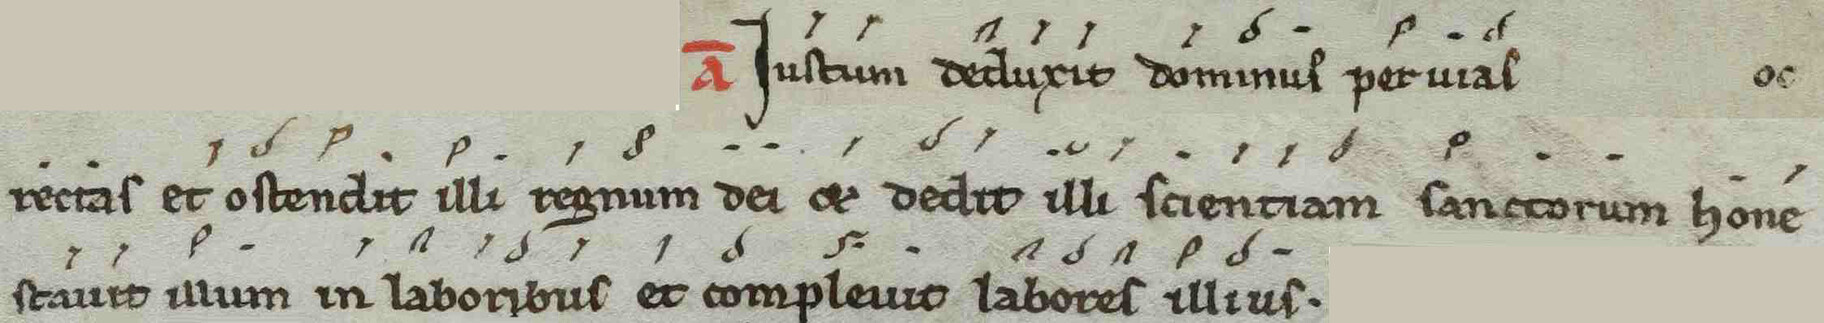 a Iustum deduxit dominus per uias oc
rectas et ostendit illi regnum dei et dedit illi scientiam sanctorum hone
stauit illum in laboribus et compleuit labores illius.